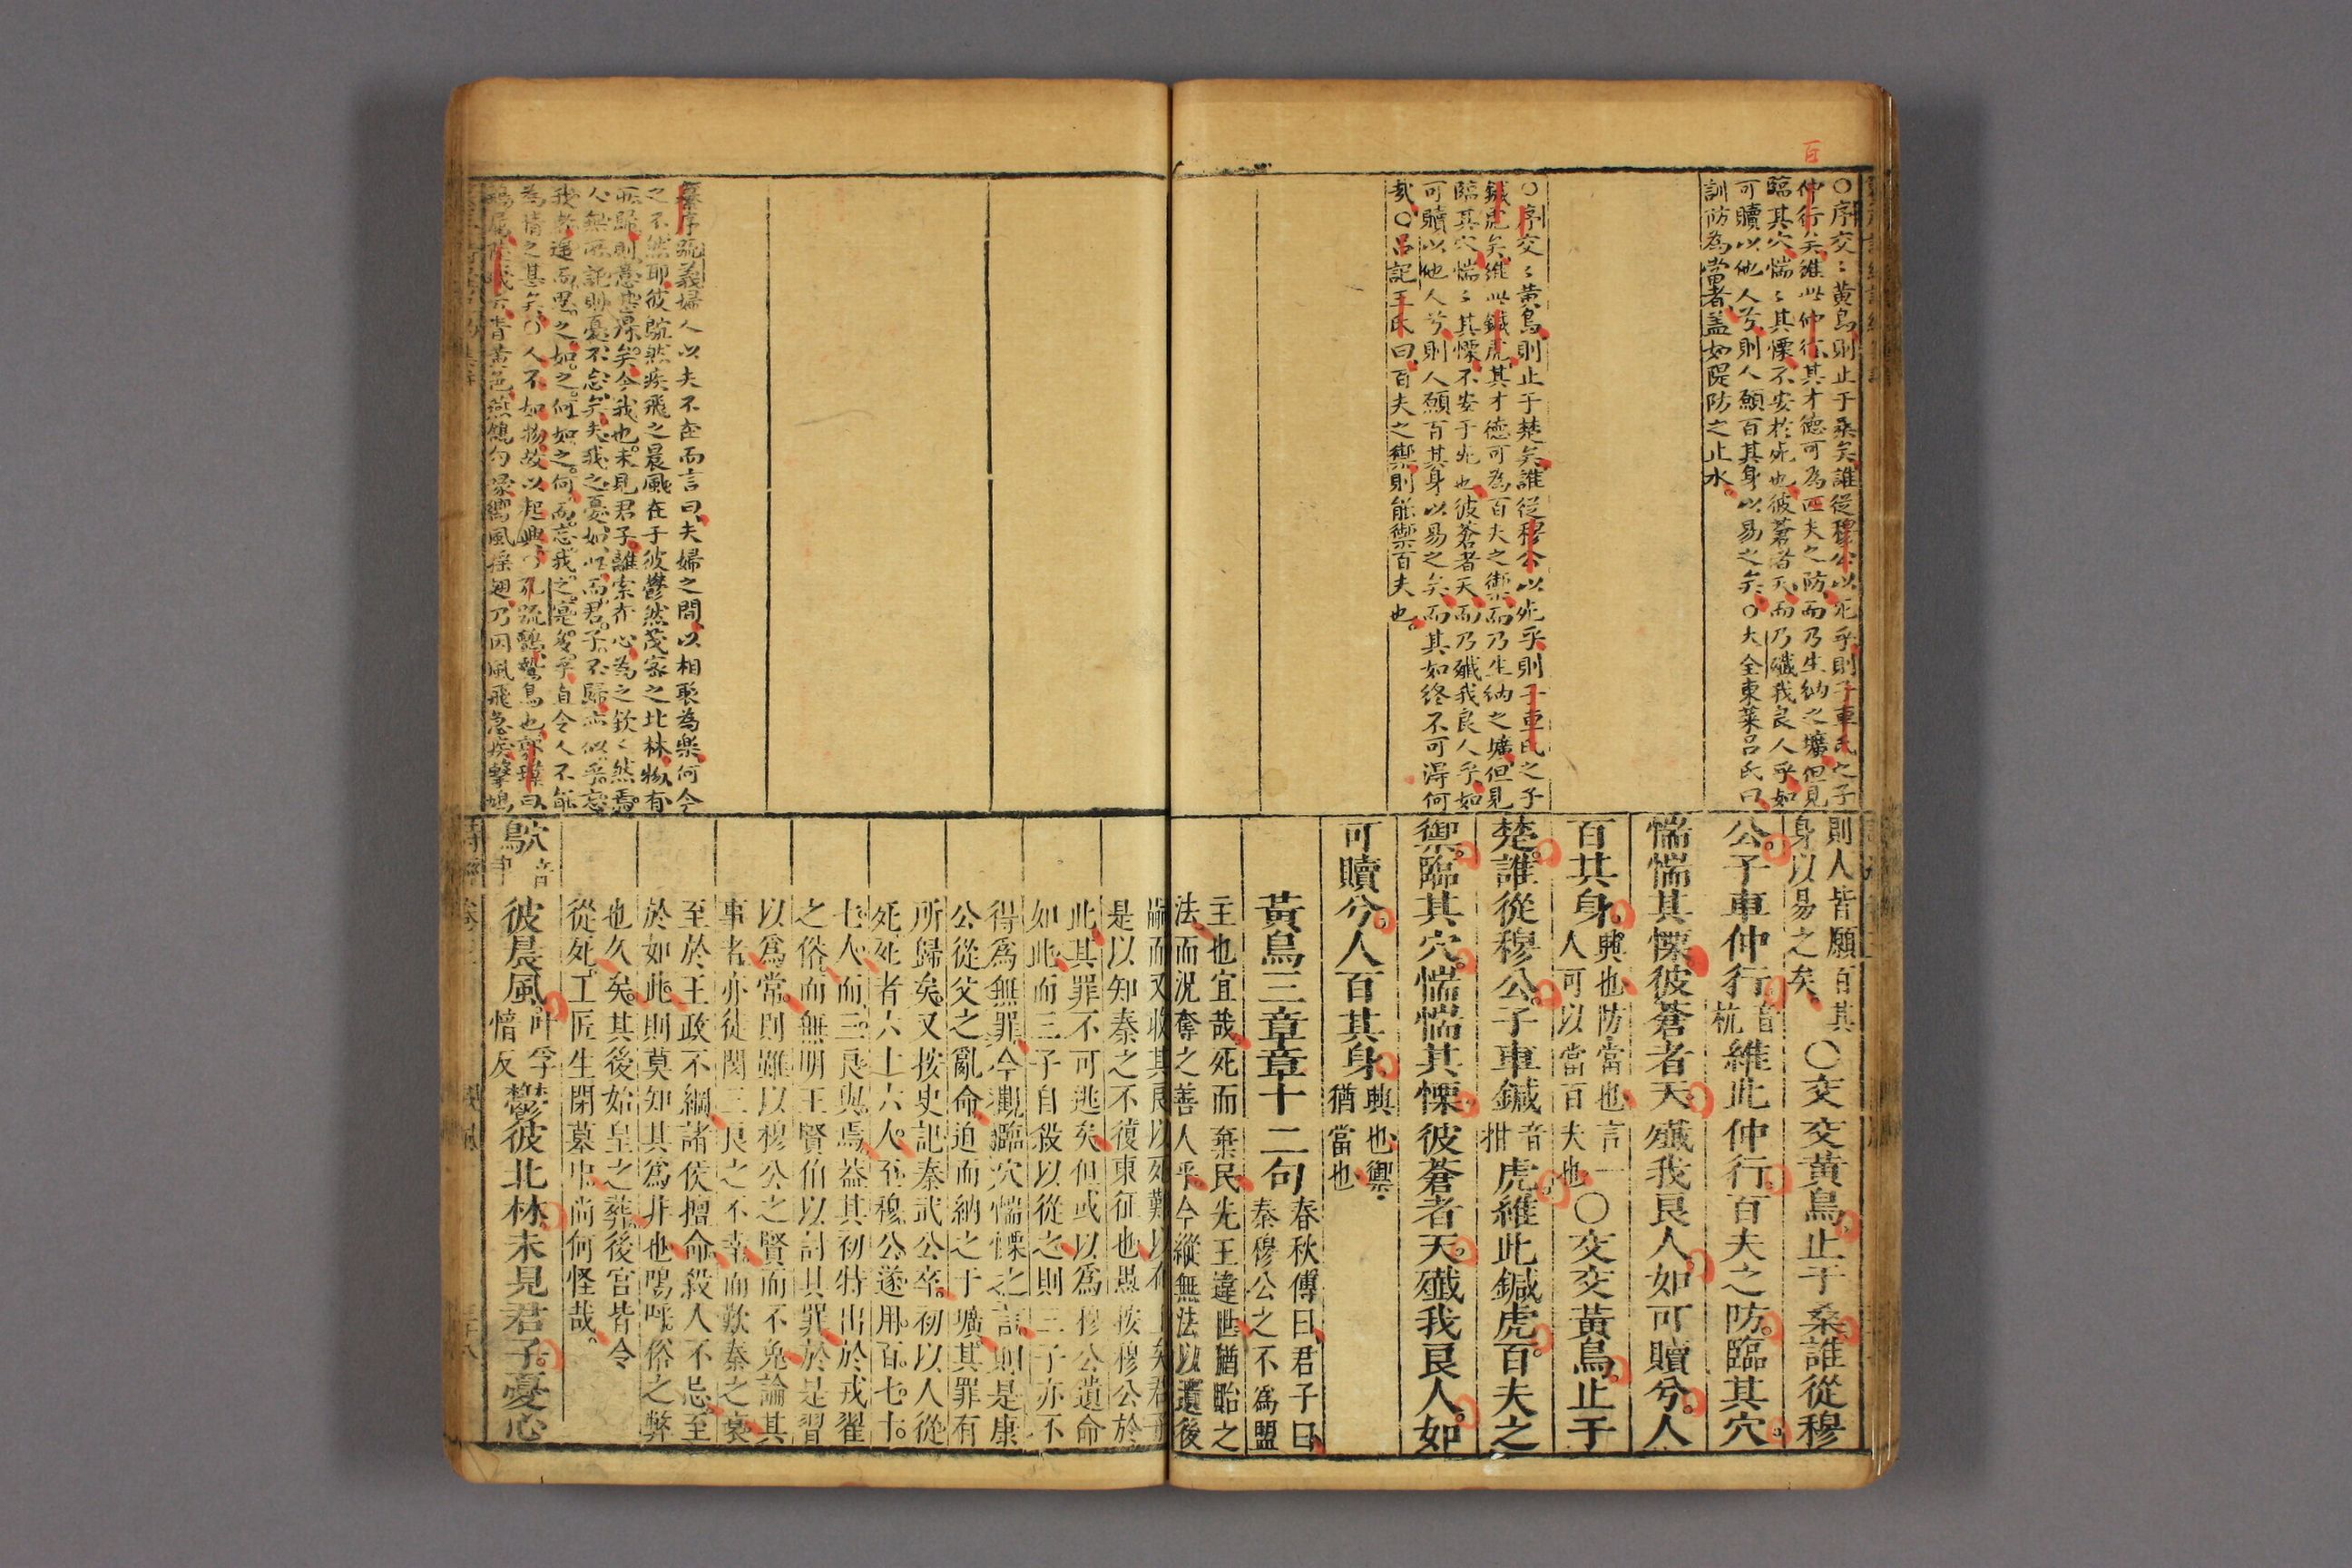 百
○序交〻黃鳥則止于桑矣誰從穆公以死乎則子車氏之子
仲行矣維此仲行其才德可為匹夫之防而乃生納之壙但見
臨其穴惴〻其慄不安於死也彼蒼者天而乃殲我良人乎如
可贖以他人兮則人願百其身以易之矣○大全東萊呂氏曰
訓防為當者蓋如隄防之止水
○序交〻黃鳥則止于楚矣誰從穆公以死乎則子車氏之子
鍼虎矣維此鍼虎其才德可為百夫之禦而乃生納之壙但見
臨其穴惴〻其慄不安于死也彼蒼者天而乃殲我良人乎如
可贖以他人兮則人願百其身以易之矣而其如終不可得何
哉○呂記王氏曰百夫之禦則能禦百夫也
則人皆願百其身以易之矣○交交黃鳥止于桑誰從穆
公子車仲行音杭維此仲行百夫之防臨其穴
惴惴其慄彼蒼者天殲我良人如可贖兮人
百其身興也防當也言一人可以當百夫也○交交黃鳥止于
楚誰從穆公子車鍼音拑虎維此鍼虎百夫之
禦臨其穴惴惴其慄彼蒼者天殲我良人如
可贖兮人百其身興也禦猶當也
黃鳥三章章十二句春秋傳曰君子曰秦穆公之不為盟
主也宜哉死而棄民先王違世猶貽之
法而況奪之善人乎今縱無法以遺後
嗣而又收其良以死難以在上矣君子
是以知秦之不復東征也愚按穆公於
此其罪不可逃矣但或以為穆公遺命
如此而三子自殺以從之則三子亦不
得爲無罪今觀臨穴惴慄之言則是康
公從父之亂命迫而納之于壙其罪有
所歸矣又按史記秦武公卒初以人從
死死者六十六人至穆公遂用百七十
七人而三良與焉蓋其初特出於戎翟
之俗而無明王賢伯以討其罪於是習
以爲常則雖以穆公之賢而不免論其
事者亦徒閔三良之不幸而歎秦之衰
至於王政不綱諸侯擅命殺人不忌至
於如此則莫知其爲非也嗚呼俗之弊
也久矣其後始皇之葬後宮皆令
從死工匠生閉墓中尚何怪哉
纂序疏義婦人以夫不在而言曰夫婦之間以相聚為樂何今
之不然耶彼鴥然疾飛之晨風在于彼鬱然茂密之北林物有
所歸則意悽凉矣今我也未見君子離索在心為之欽〻然焉
人無所託則憂不忘矣夫我之憂如此而君子不歸亦似乎忘
我者遥而思之如之何如之何而忘我之寔多乎直令人不能
為情之甚矣○人不如物故以起興○孔疏鸇鷙鳥也郭璞曰
鷂屬陸璣云青黃色燕頷勾喙嚮風搖翅乃因風飛急疾擊鳩
鴥音聿彼晨風叶孚愔反鬱彼北林未見君子憂心